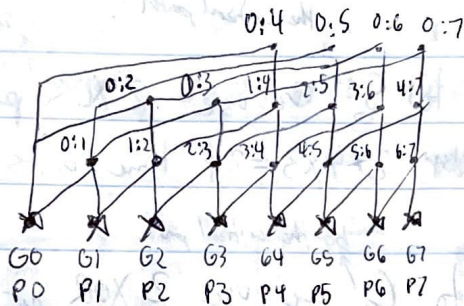 0:4 0:5 0:6 0:7
0:2 0:3 1:4 2:5 3:6 4:7
0:1 1:2 2:3 3:4 4:5 5:6 6:7
G0 G1 G2 G3 G4 G5 G6 G7
P0 P1 P2 P3 P4 P5 P6 P7